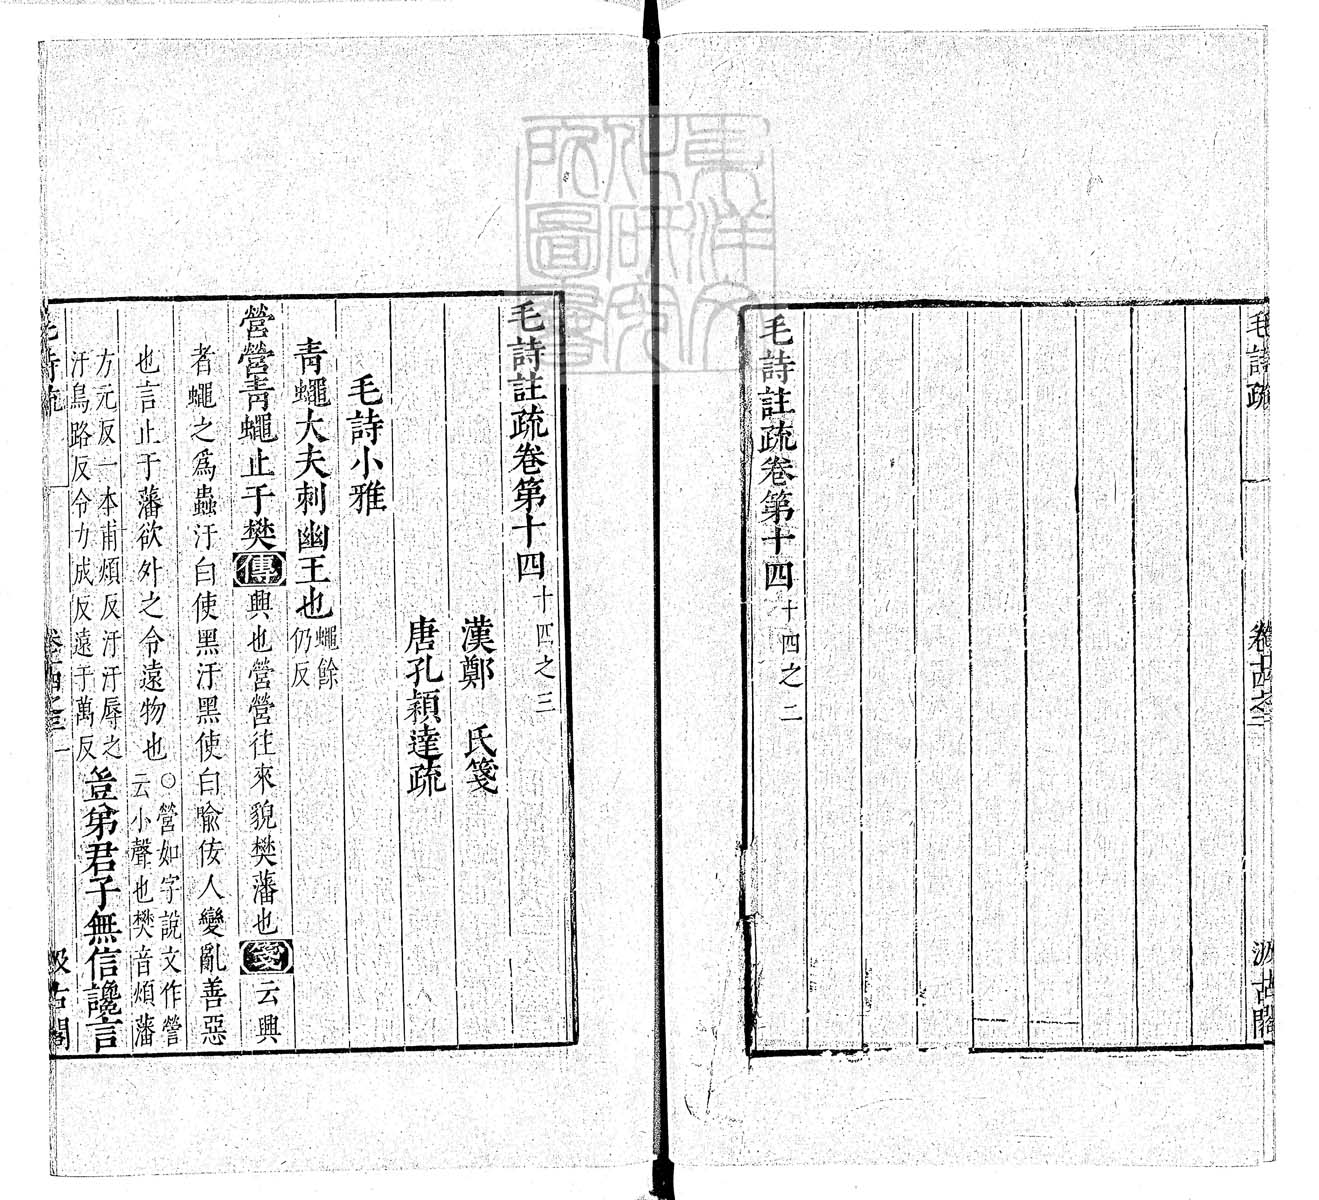 毛詩疏
卷十四之二
汲古閣
毛詩註疏卷第十四十四之二
毛詩註疏卷第十四十四之三
漢鄭　氏箋
唐孔穎達疏
毛詩小雅
青蠅大夫刺幽王也蠅餘仍反
營營青蠅止于樊傳興也營營往來貌樊藩也箋云興
者蠅之爲蟲汙白使黑汙黑使白喻佞人變亂善惡
也言止于藩欲外之令遠物也○營如字說文作營云小聲也樊音煩藩
方元反一本甫煩反汙汙辱之汙烏路反令力成反遠于萬反豈弟君子無信讒言
毛詩疏
卷十四之三
一
汲古閣
東洋文化研究所圖書